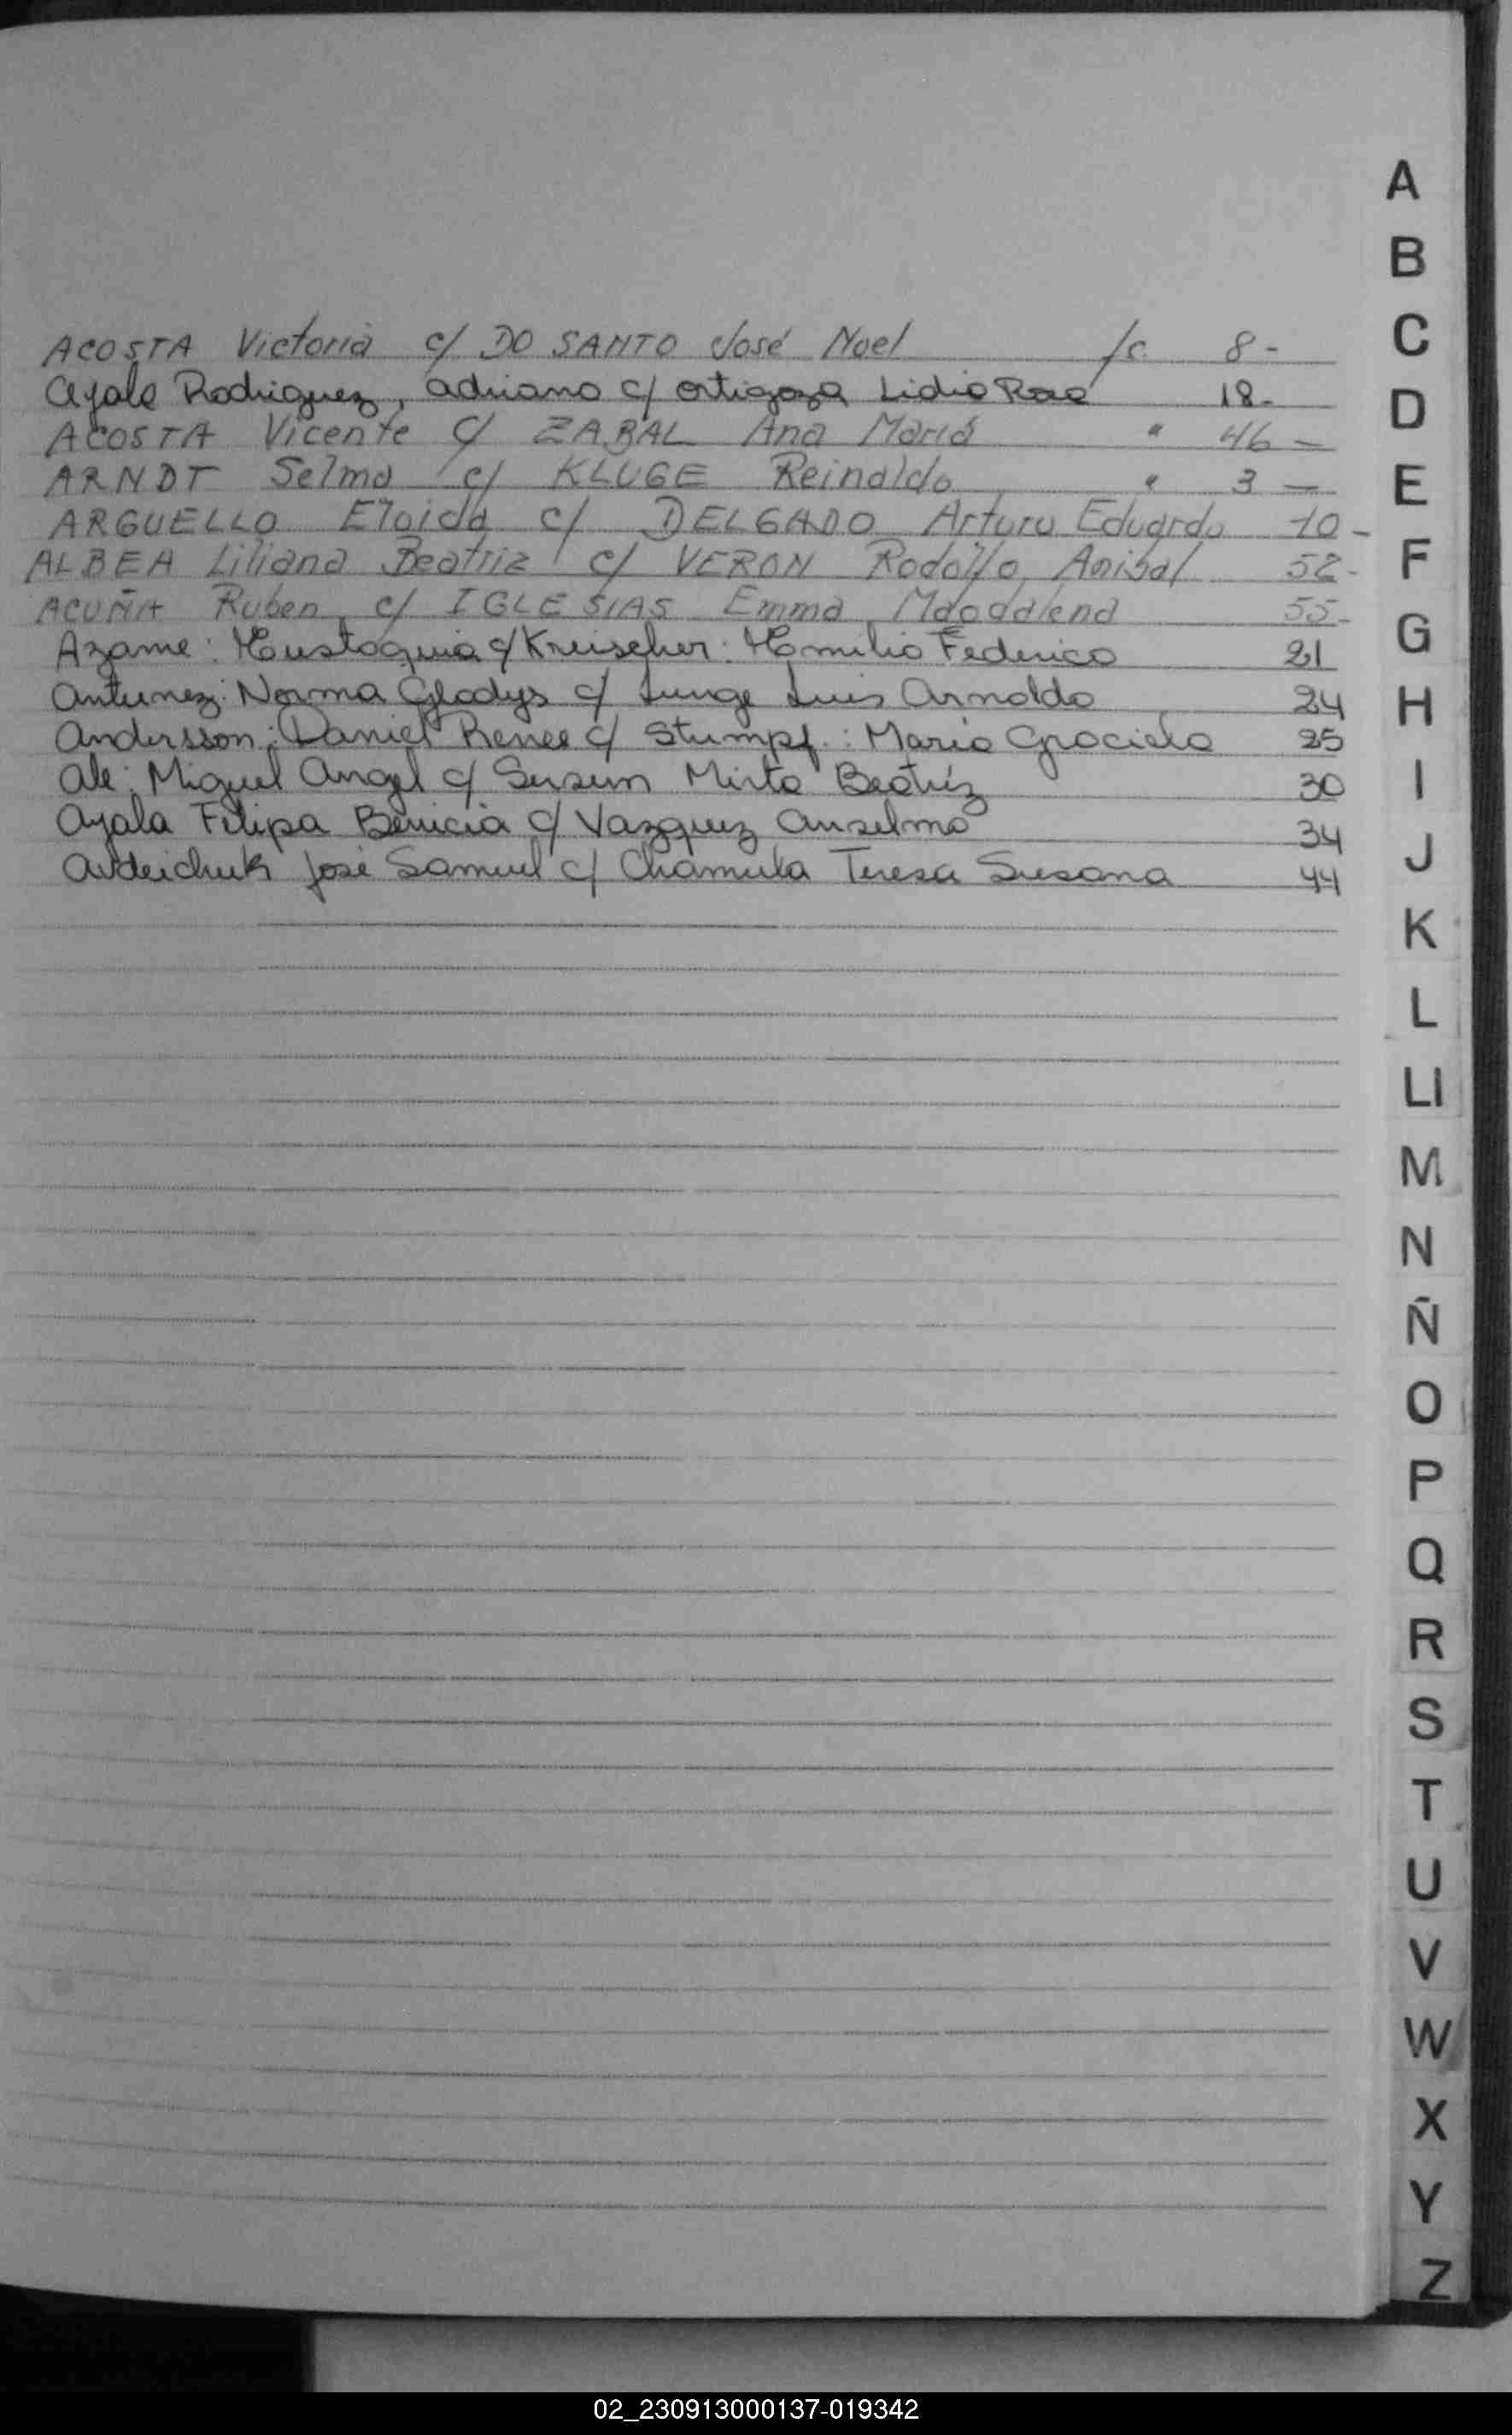 ACOSTA Victoria c/ DO SANTO José Noel /c. 8-
Ayala Rodriguez, Adriano c/ Ortigoza Lidia Rosa 18-
ACOSTA Vicente c/ ZABAL Ana María " 46-
ARNDT Selma c/ KLUGE Reinaldo " 3-
ARGUELLO Eloida c/ DELGADO Arturo Eduardo 10-
ALBEA Liliana Beatriz c/ VERON Rodolfo Anibal 52-
ACUÑA Ruben c/ IGLESIAS Emma Magdalena 55-
Azame: Eustoquia c/ Kreischer: Emilio Federico 21
Antunez: Norma Gladys c/ Junge Luis Arnoldo 24
Andersson: Daniel Renee c/ Stumpf: Maria Graciela 25
Ale: Miguel Angel c/ Mirta Beatríz 30
Ayala Filipa Benicia c/ Vazquez Anselmo 34
Avdeichuk José Samuel c/ Chamula Teresa Susana 44
A
B
C
D
E
F
G
H
I
J
K
L
Ll
M
N
Ñ
O
P
Q
R
S
T
U
V
W
X
Y
Z
02_230913000137-019342